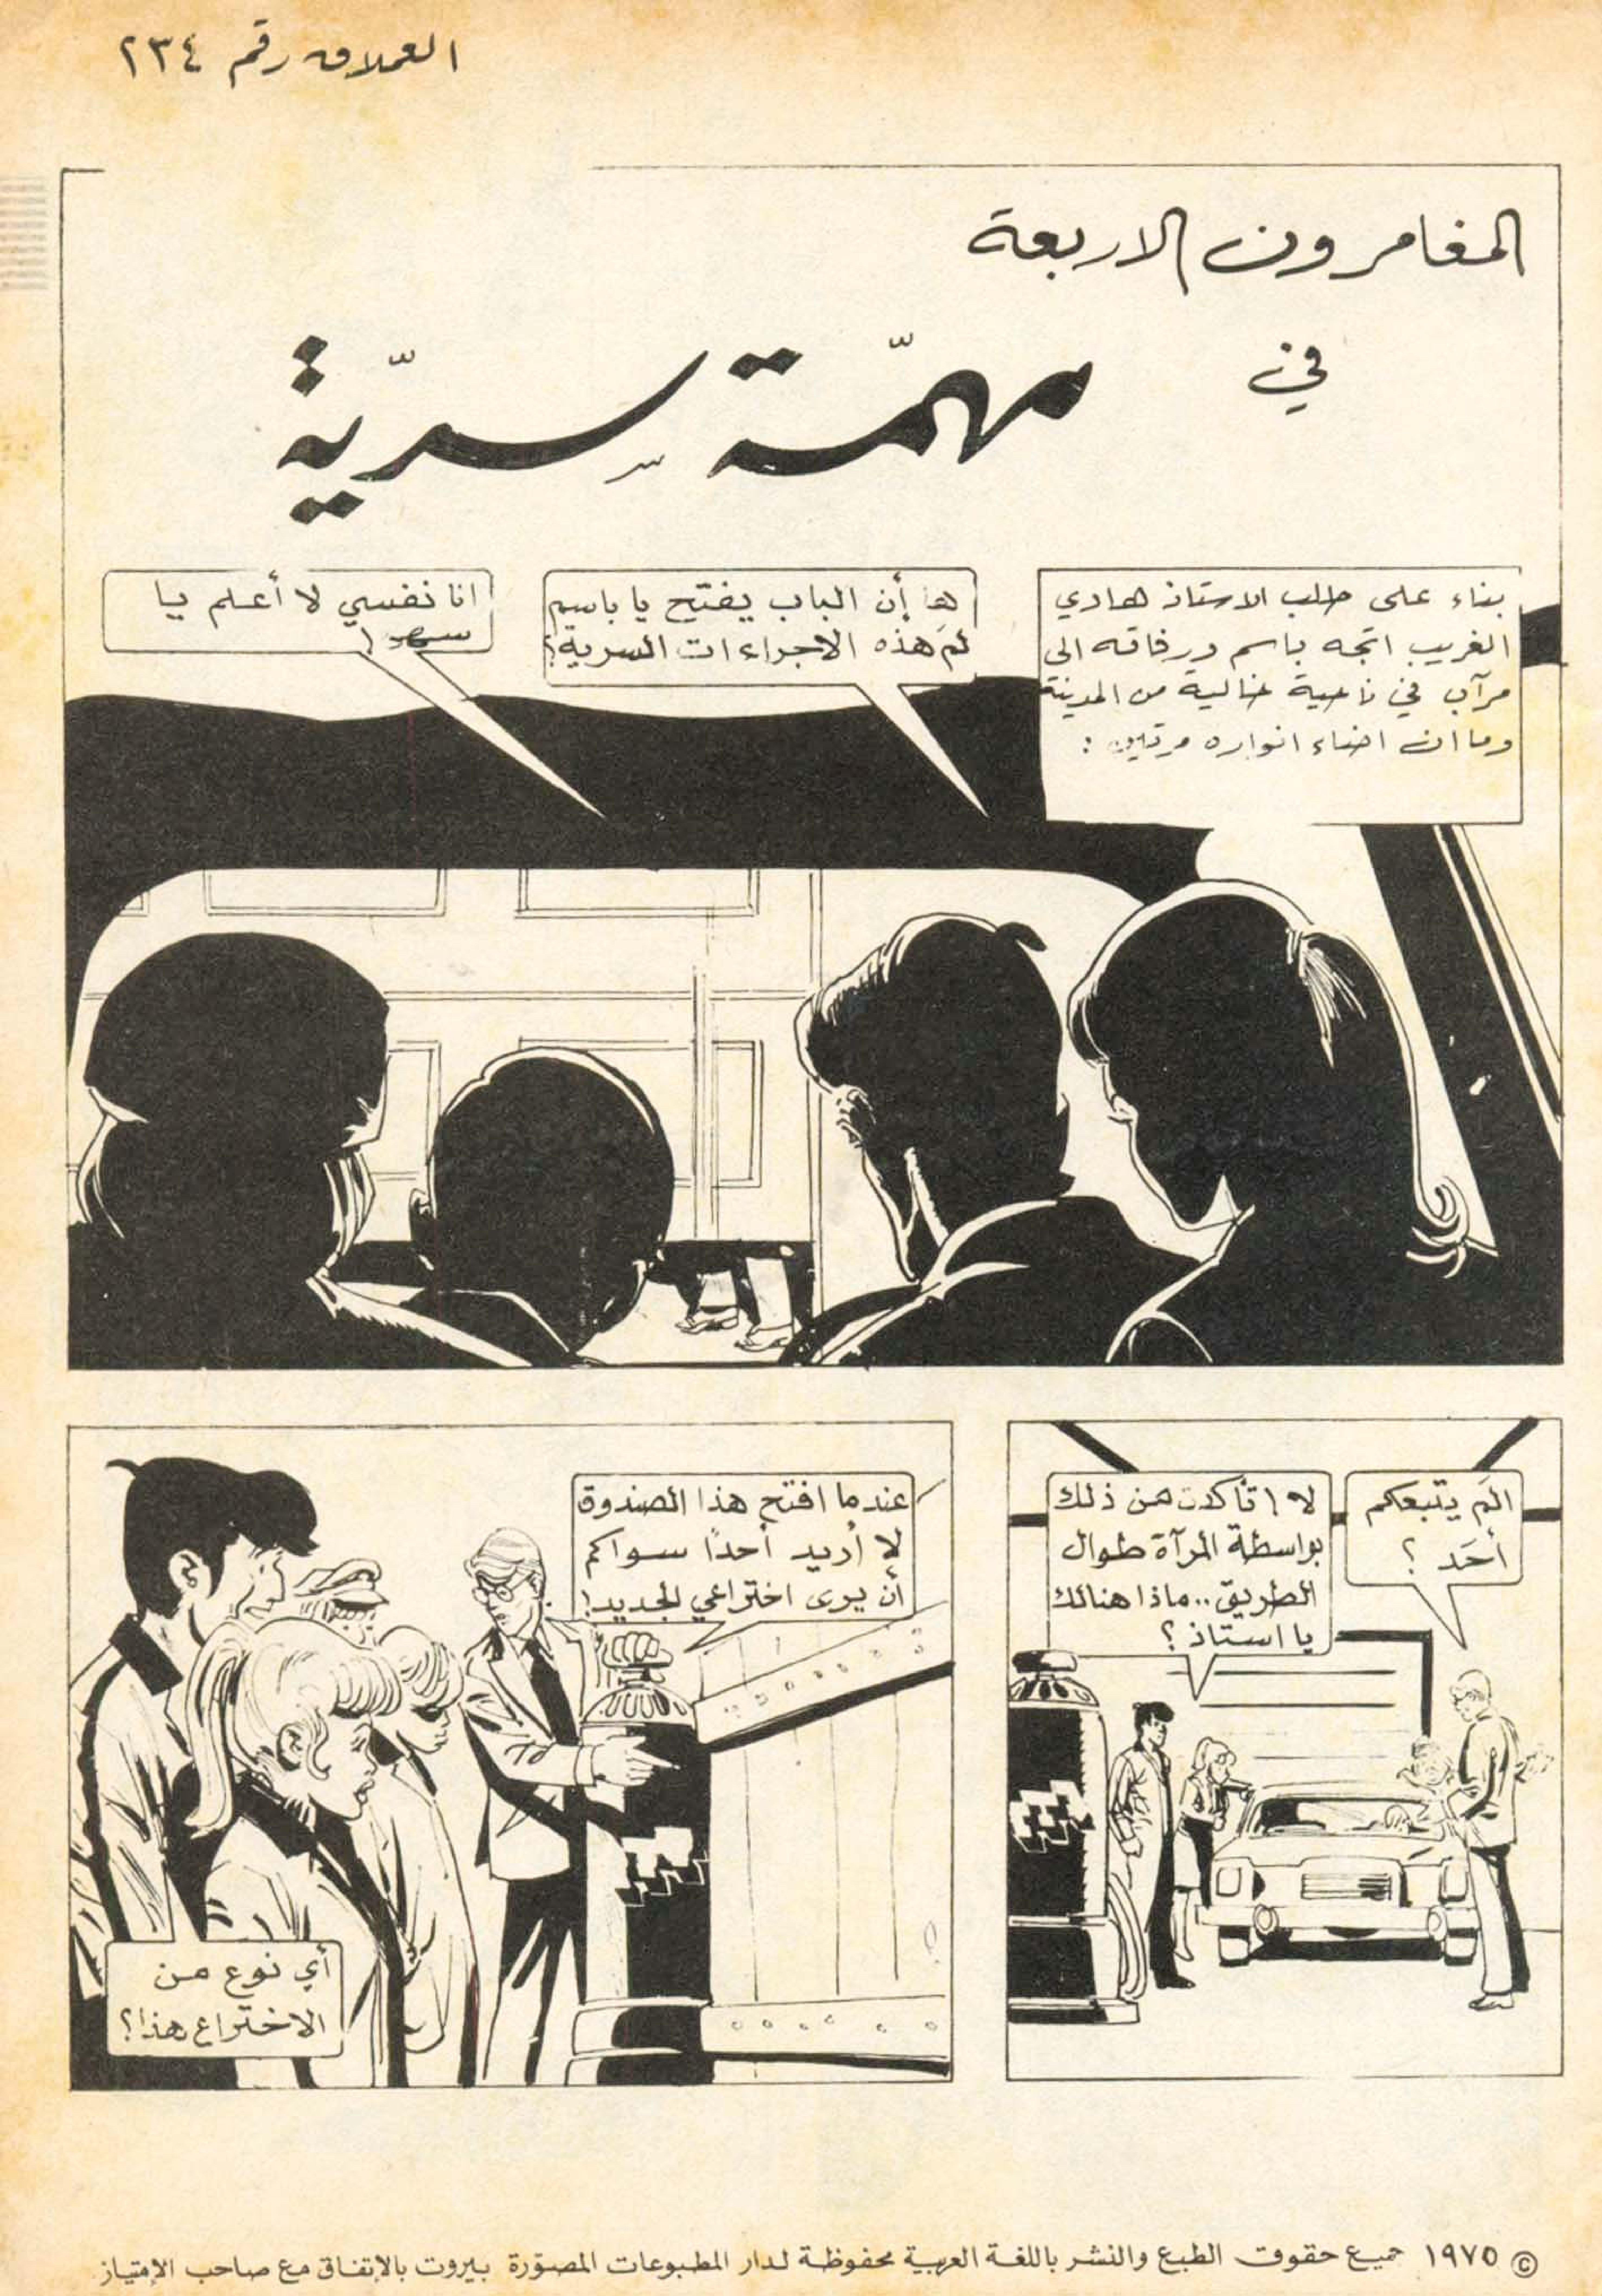 العملاق رقم ٢٣٤
المغامرون الاربعة
في
مهمّة سِرّية
بناء على طلب الاستاذ هادي
الغريب اتجه باسم ورفاقه الى
مرآب في ناحية خالية من المدينة
وما ان اضاء انواره مرتين :
ها إن الباب يفتح يا باسم
لمَ هذه الاجراءات السرية؟
انا نفسي لا أعلم يا
الَم يتبعكم
أحَد ؟
لا ! تأكدت من ذلك
بواسطة المرآة طوال
الطريق.. ماذا هنالك
يا استاذ ؟
عندما افتح هذا الصندوق
لا أريد أحداً سواكم
أن يرى اختراعي الجديد!
أي نوع من
الاختراع هذا؟
© ١٩٧٥ جميع حقوق الطبع والنشر باللغة العربية محفوظة لدار المطبوعات المصوّرة بيروت بالإتفاق مع صاحب الإمتياز